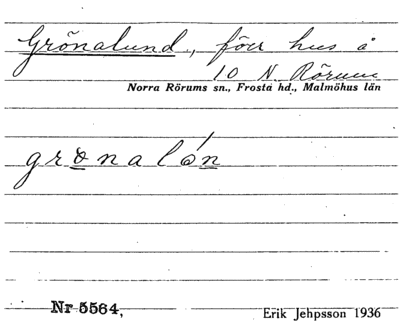 Grönalund., förr hus å
10 N. Rörum
Norra Rörums sn., Frosta hd., Malmöhus län
grønalón
Nr 5564,
Erik Jehpsson 1936